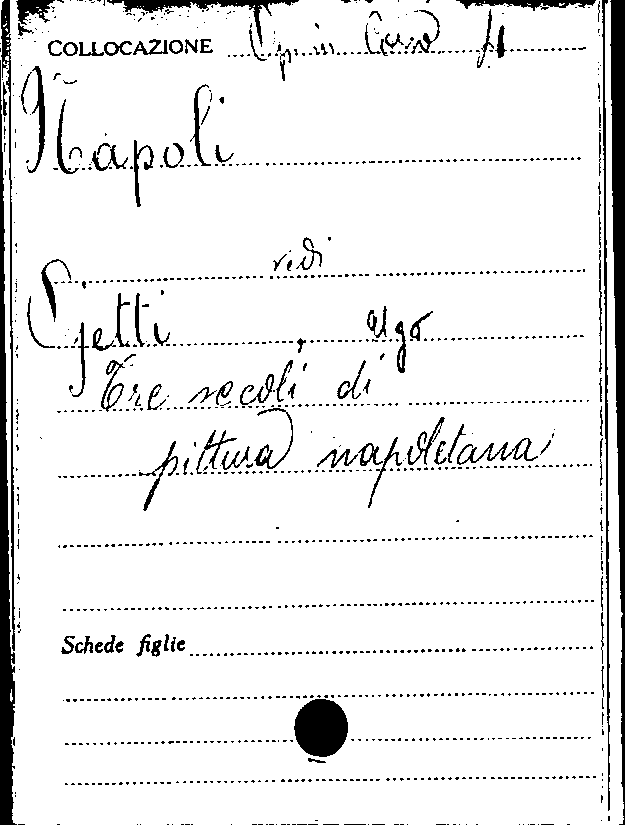 COLLOCAZIONE Opin Coro
Napoli
vedi
Ojetti, Ugo
Tre secoli di
pittura napoletana
Schede figlie